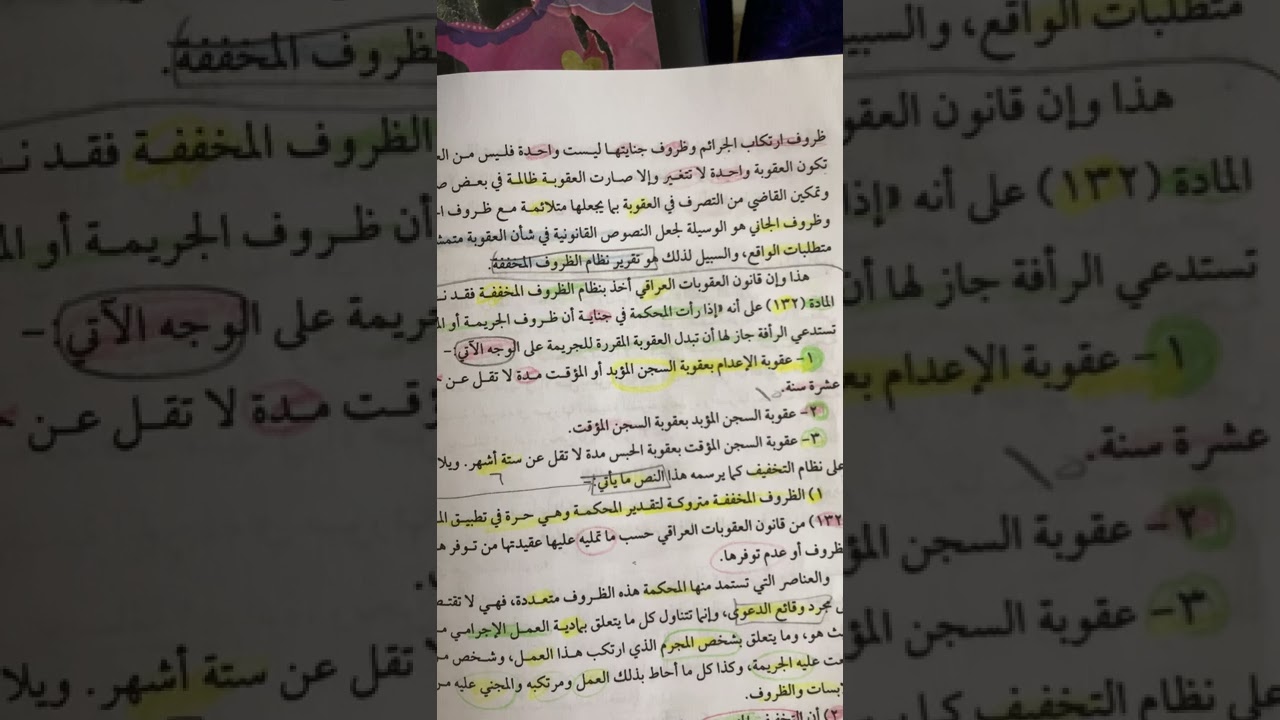 ظروف ارتكاب الجرائم وظروف جنايتها ليست واحدة فليس من
تكون العقوبة واحدة لا تتغير وإلا صارت العقوبة ظالمة في بعض
وتمكين القاضي من التصرف في العقوبة بما يجعلها متلائمة مع ظروف
وظروف الجاني هو الوسيلة لجعل النصوص القانونية في شأن العقوبة
متطلبات الواقع، والسبيل لذلك هو تقرير نظام الظروف المخففة.
هذا وإن قانون العقوبات العراقي أخذ بنظام الظروف المخففة فقد
المادة (١٣٢) على أنه «إذا رأت المحكمة في جناية أن ظروف الجريمة أو
تستدعي الرأفة جاز لها أن تبدل العقوبة المقررة للجريمة على الوجه الآتي:-
١- عقوبة الإعدام بعقوبة السجن المؤبد أو المؤقت مدة لا تقل عن
عشرة سنة.
٢- عقوبة السجن المؤبد بعقوبة السجن المؤقت.
٣- عقوبة السجن المؤقت بعقوبة الحبس مدة لا تقل عن ستة أشهر. ويلا
على نظام التخفيف كما يرسمه هذا النص ما يأتي:-
٦
١) الظروف المخففة متروكة لتقدير المحكمة وهي حرة في تطبيق
١٣٢) من قانون العقوبات العراقي حسب ما تمليه عليها عقيدتها من توفر
ظروف أو عدم توفرها.
والعناصر التي تستمد منها المحكمة هذه الظروف متعددة، فهي لا
مجرد وقائع الدعوى، وإنما تتناول كل ما يتعلق بمادية العمل الإجرامي
هو، وما يتعلق بشخص المجرم الذي ارتكب هذا العمل، وشخص
عليه الجريمة، وكذا كل ما أحاط بذلك العمل ومرتكبه والمجني عليه
والظروف.
أن